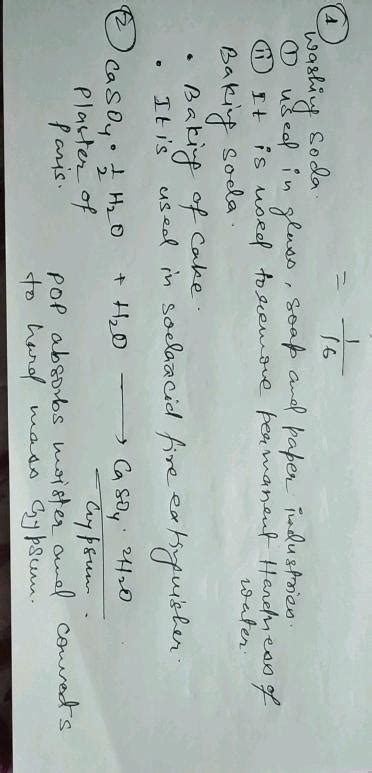 = 1/16
① Washing Soda.
① Used in glass, soap and paper industries.
ⅱ It is used to remove permanent Hardness of
water.
Baking Soda.
• Baking of Cake.
• It is used in soda acid fire extinguisher.
② CaSO4 . 1/2 H2O + H2O ⟶ CaSO4 . 2H2O
Plaster of Gypsum.
paris.
POP absorbs moister and converts
to hard mass Gypsum.